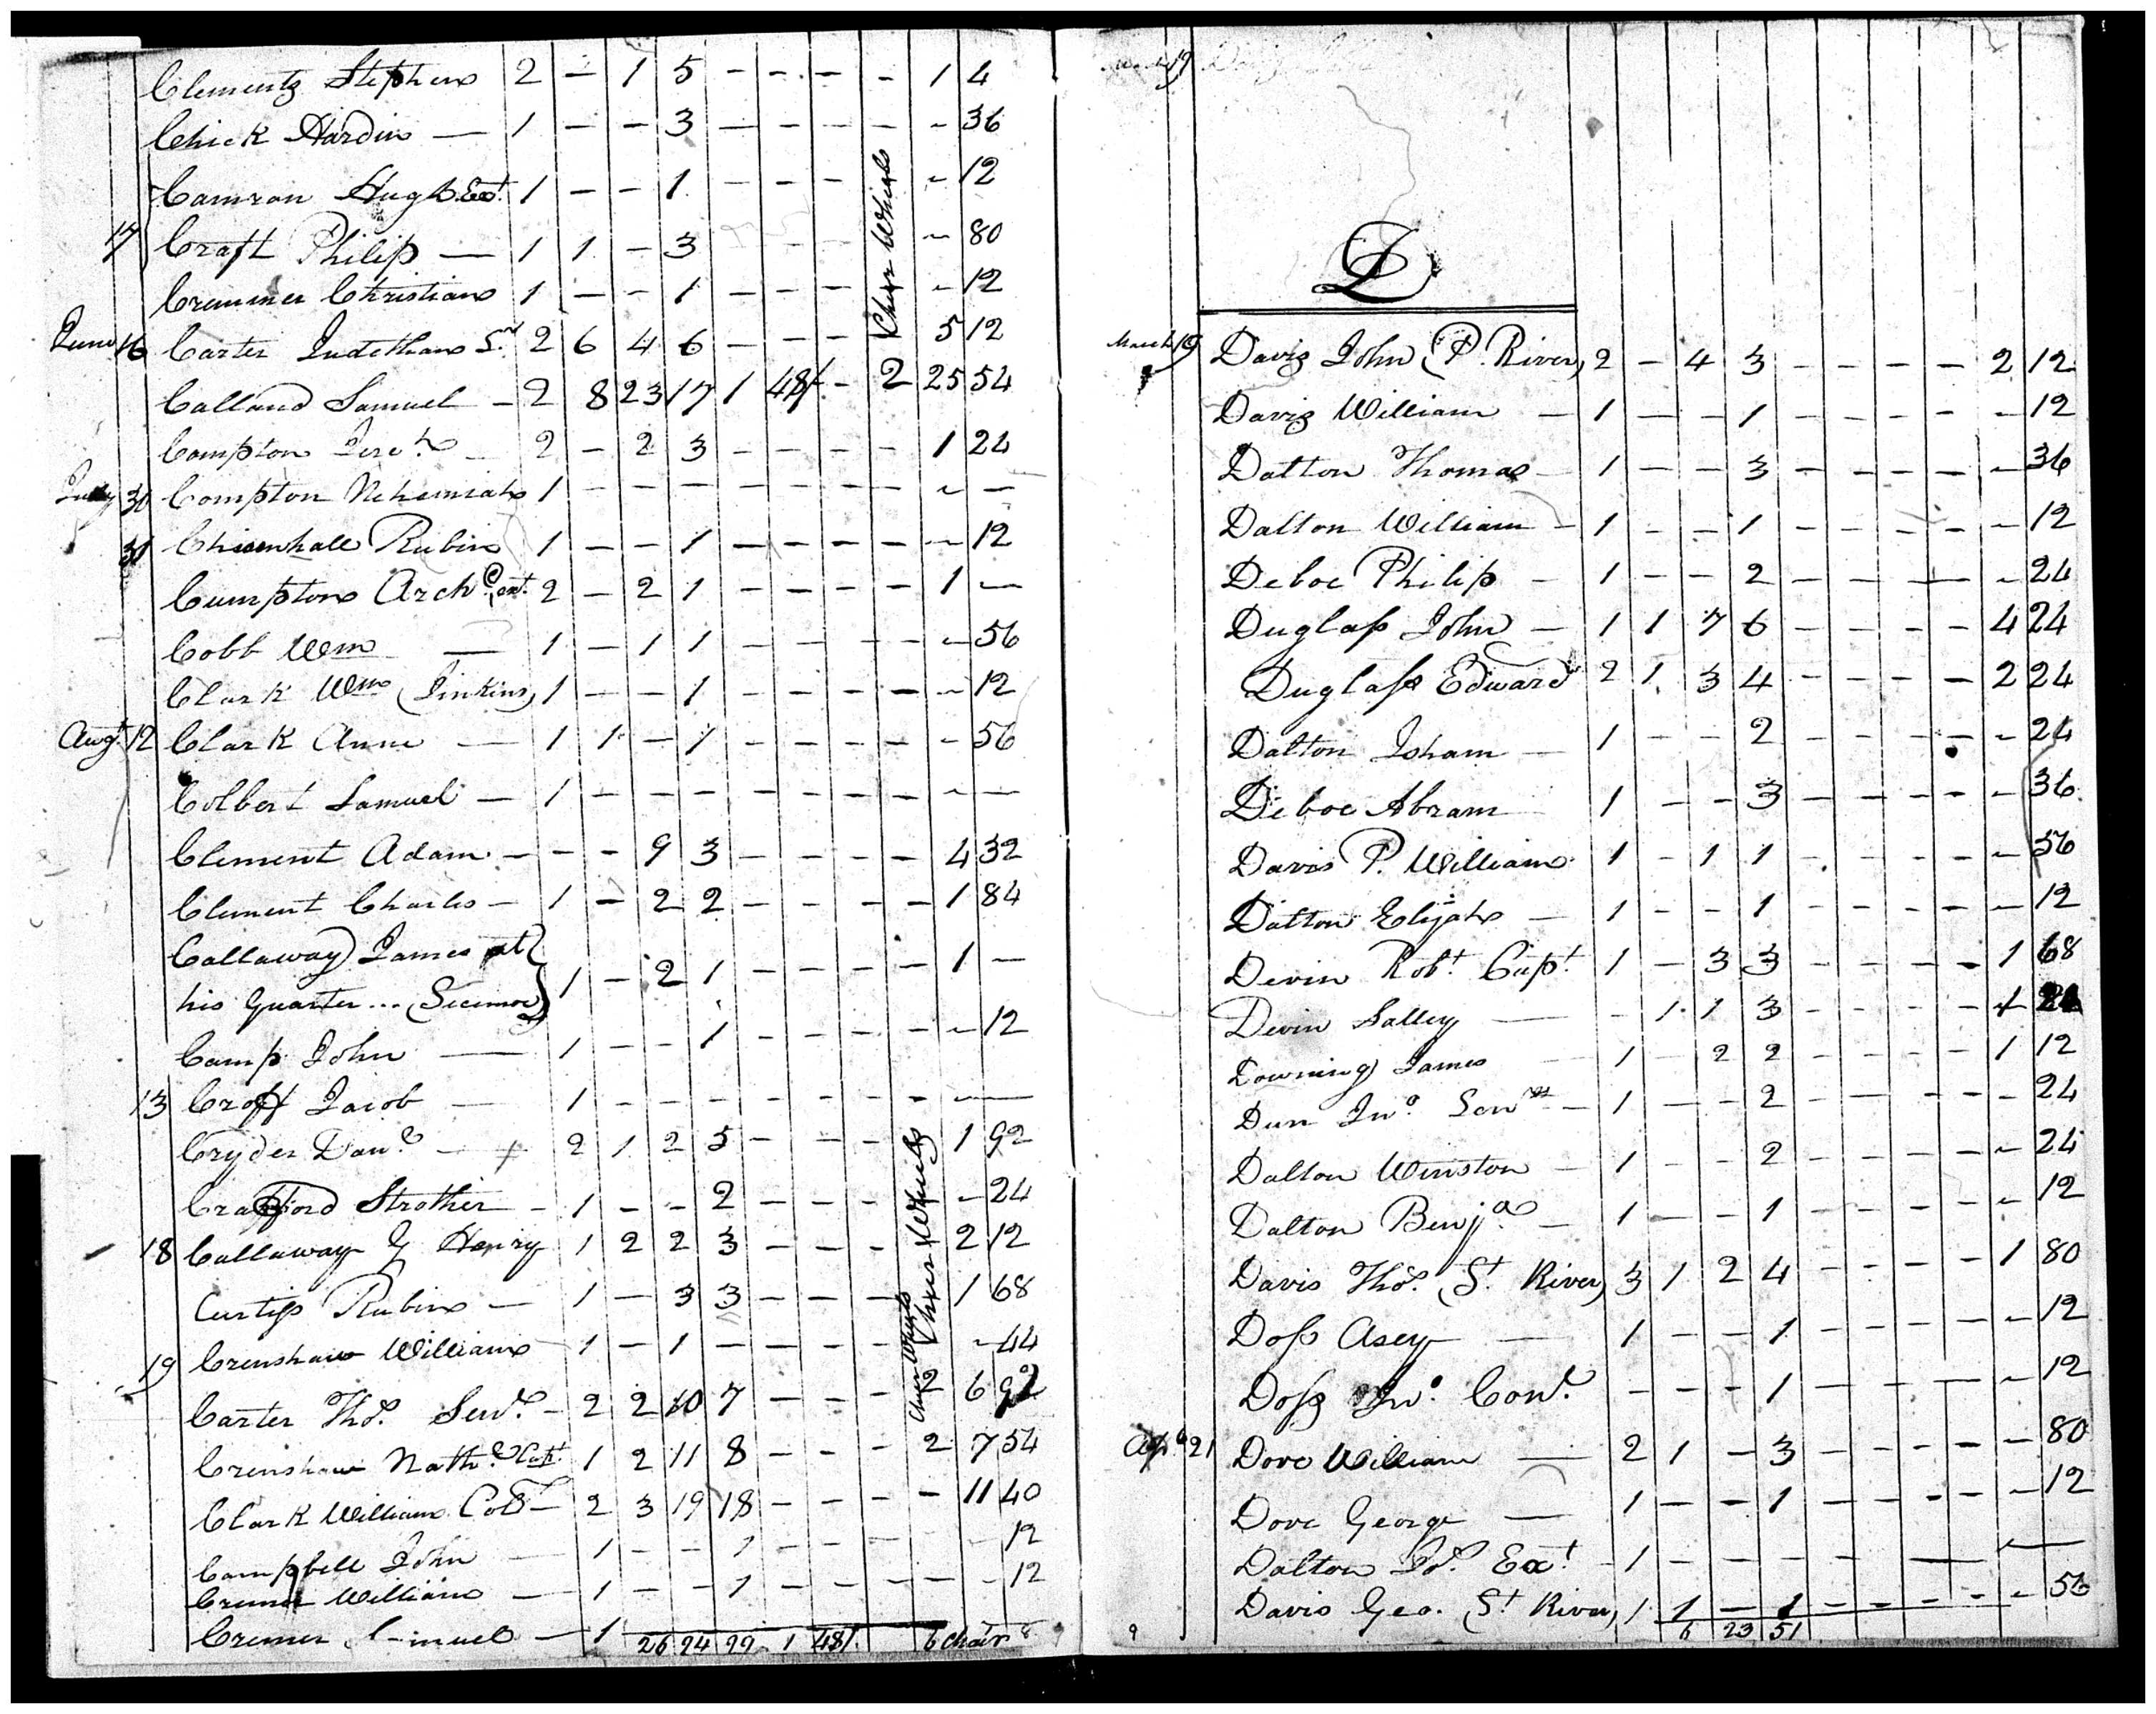 Clementz Stephen 2 – 1 5 – – – – 1 4
Chick Hardin — 1 – – 3 – – – – – 36
Camron Hugh Ext. 1 – – 1 – – – – 12
17 Craft Philip — 1 1 – 3 – – – 80
Cremmer Christian 1 – – 1 – – – – 12
Chair Wheels
June 16 Carter Judethan Sr. 2 6 4 6 – – – 5 12
Calland Samuel – 2 8 23 17 1 48/– – 2 25 54
Compton Jere.h – 2 – 2 3 – – – – 1 24
July 30 Compton Nehemiah 1 – – – – – – – – –
30 Chisenhall Rubin 1 – – 1 – – – – – 12
Cumpton Arch.d ext. 2 – 2 1 – – – – 1 –
Cobb Wm — 1 – 1 1 – – – – – 56
Clark Wm (Jinkins) 1 – – 1 – – – – – 12
Augt. 12 Clark Anne — 1 1 – 1 – – – – – 56
Colbert Samuel — 1 – – – – – – – – –
Clement Adam – – – 9 3 – – – – 4 32
Clement Charles – 1 – 2 2 – – – – 1 84
Callaway James at }
his Quarter ... } 1 – 2 1 – – – – 1 –
Camp John — 1 – – 1 – – – – – 12
13 Croff Jacob — 1 – – – – – – – – –
Cryder Dan.l – + 2 1 2 5 – – – – 1 92
Crafford Strother – 1 – – 2 – – – – – 24
Chair Wheels
18 Callaway Henry 1 2 2 3 – – – 2 12
Curtiss Rubin — 1 – 3 3 – – – 1 68
19 Crenshaw William 1 – 1 – – – – – 44
Chair Wheels
Carter Tho.s Sen.r – 2 2 10 7 – – – 2 6 92
Crenshaw Nath.l Capt. 1 2 11 8 – – – 2 7 54
Clark William Col. — 2 3 19 18 – – – – 11 40
Campbell John — 1 – – 1 – – – – – 12
Cremer William — 1 – – 1 – – – – – 12
Cremer – 1
26 94 99 1 48/. 6 chair
March 19
D
March 19 Davis John (P. River) 2 – 4 3 – – – – 2 12
Davis William — 1 – – 1 – – – – – 12
Dalton Thomas – 1 – – 3 – – – – – 36
Dalton William – 1 – – 1 – – – – – 12
Deboe Philip – 1 – – 2 – – – – – 24
Duglass John – 1 1 7 6 – – – – 4 24
Duglass Edward 2 1 3 4 – – – – 2 24
Dalton Isham — 1 – – 2 – – – – – 24
Deboe Abram 1 – – 3 – – – – – 36
Davis P. William 1 – 1 1 – – – – – 56
Dalton Elijah — 1 – – 1 – – – – – 12
Devin Robt. Capt. 1 – 3 3 – – – – 1 68
Devin Salley — – 1 1 3 – – – – 1
Downing James 1 – 2 2 – – – – 1 12
Dun Jno. Senr. – 1 – – 2 – – – – – 24
Dalton Winston – 1 – – 2 – – – – – 24
Dalton Benj.a – 1 – – 1 – – – – – 12
Davis Tho.s (St. River) 3 1 2 4 – – – – 1 80
Doss Asey — 1 – – 1 – – – – – 12
Doss Jno. Con.t – – – 1 – – – – – 12
Apl. 21 Dove William — 2 1 – 3 – – – – – 80
Dove George — 1 – – 1 – – – – – 12
Dalton Jo.s Ext. – 1 – – – – – – – – –
Davis Geo. (St. River) 1 1 – 1 – – – – – 56
9 6 23 51